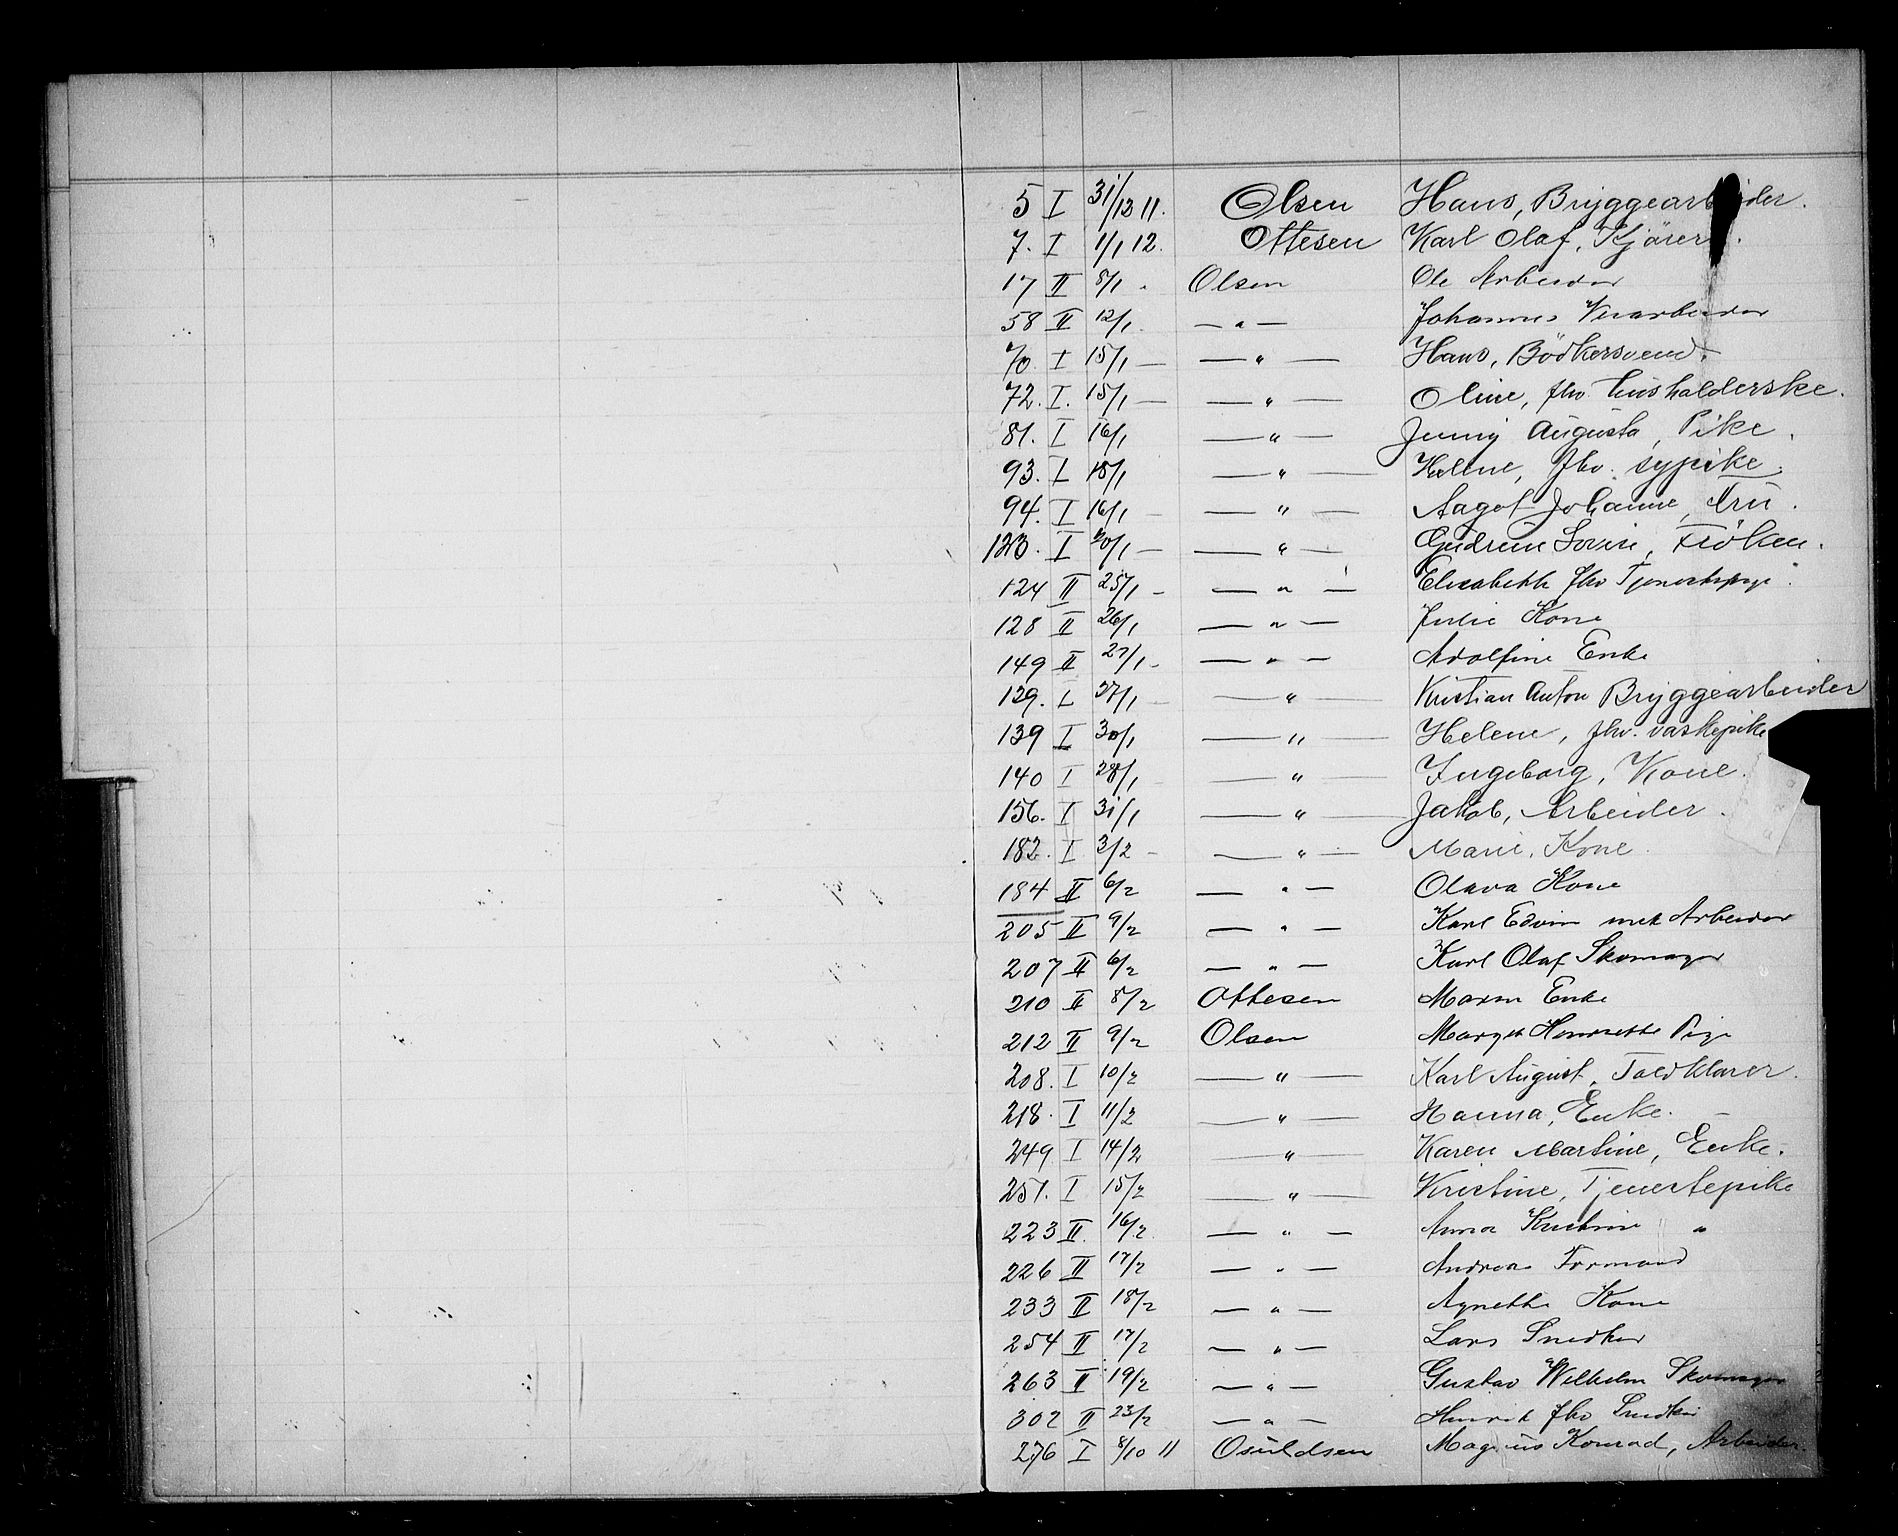 5 I 31/12 11. Olsen Hans, Bryggearbeider.
7. I 1/1 12. Ottesen Karl Olaf, Kjörer.
17 II 8/1 . Olsen Ole Arbeider
58 II 12/1. — " — Johannes
70 I 15/1 — — " — Hans, Bödkersvend.
72. I. 15/1 — — " — Oline, fhv. husholderske.
81. I 16/1 — " — Jenny Augusta, Pike.
93. I 18/1 — " — Helene, fhv. sypike.
94. I 16/1 — — " — Aagot Johanne, Fru.
123. I 20/1 — — " — Gudrun Lovise, Fröken.
124 II 25/1 — — " — Elisabeth fhv Tjenestepige.
128 II 26/1 — " — Julie Kone
149 II 27/1 - — " — Adolfine Enke
129. I 27/1 — — " — Kristian Anton Bryggearbeider
139 I 30/1 — " — Helene, fhv. vaskepike
140 I 28/1 — — " — Ingeborg, Kone.
156. I 31/1 — " — Jakob, Arbeider.
182. I 3/2 - — " — Marie, Kone.
184 II 6/2 — " — Olava Kone
205 II 9/2 — " — Karl Edvin Arbeider
207 II 6/2 — " — Karl Olaf Skomager
210 II 8/2 Ottesen Maren Enke
212 II 9/2 Olsen Margit Henriette Pige
208. I 10/2 — " — Karl August, Toldklarer.
218. I 11/2 — " — Hanna, Enke.
249 I 14/2 — " — Karen Martine, Enke.
251. I 15/2 — " — Kristine, Tjenestepike
223 II. 16/2. — " — Anna Kristine "
226 II 17/2 — " — Andreas Formand
233 II 18/2 — " — Agnethe Kone
254 II 17/2 — " — Lars Snedker
263 II 19/2 — " — Gustav Wilhelm Skomager
302 II 23/2 — " — Henrik fhv Snedker
276 I 8/10 11 Osuldsen Magnus Konrad, Arbeider.